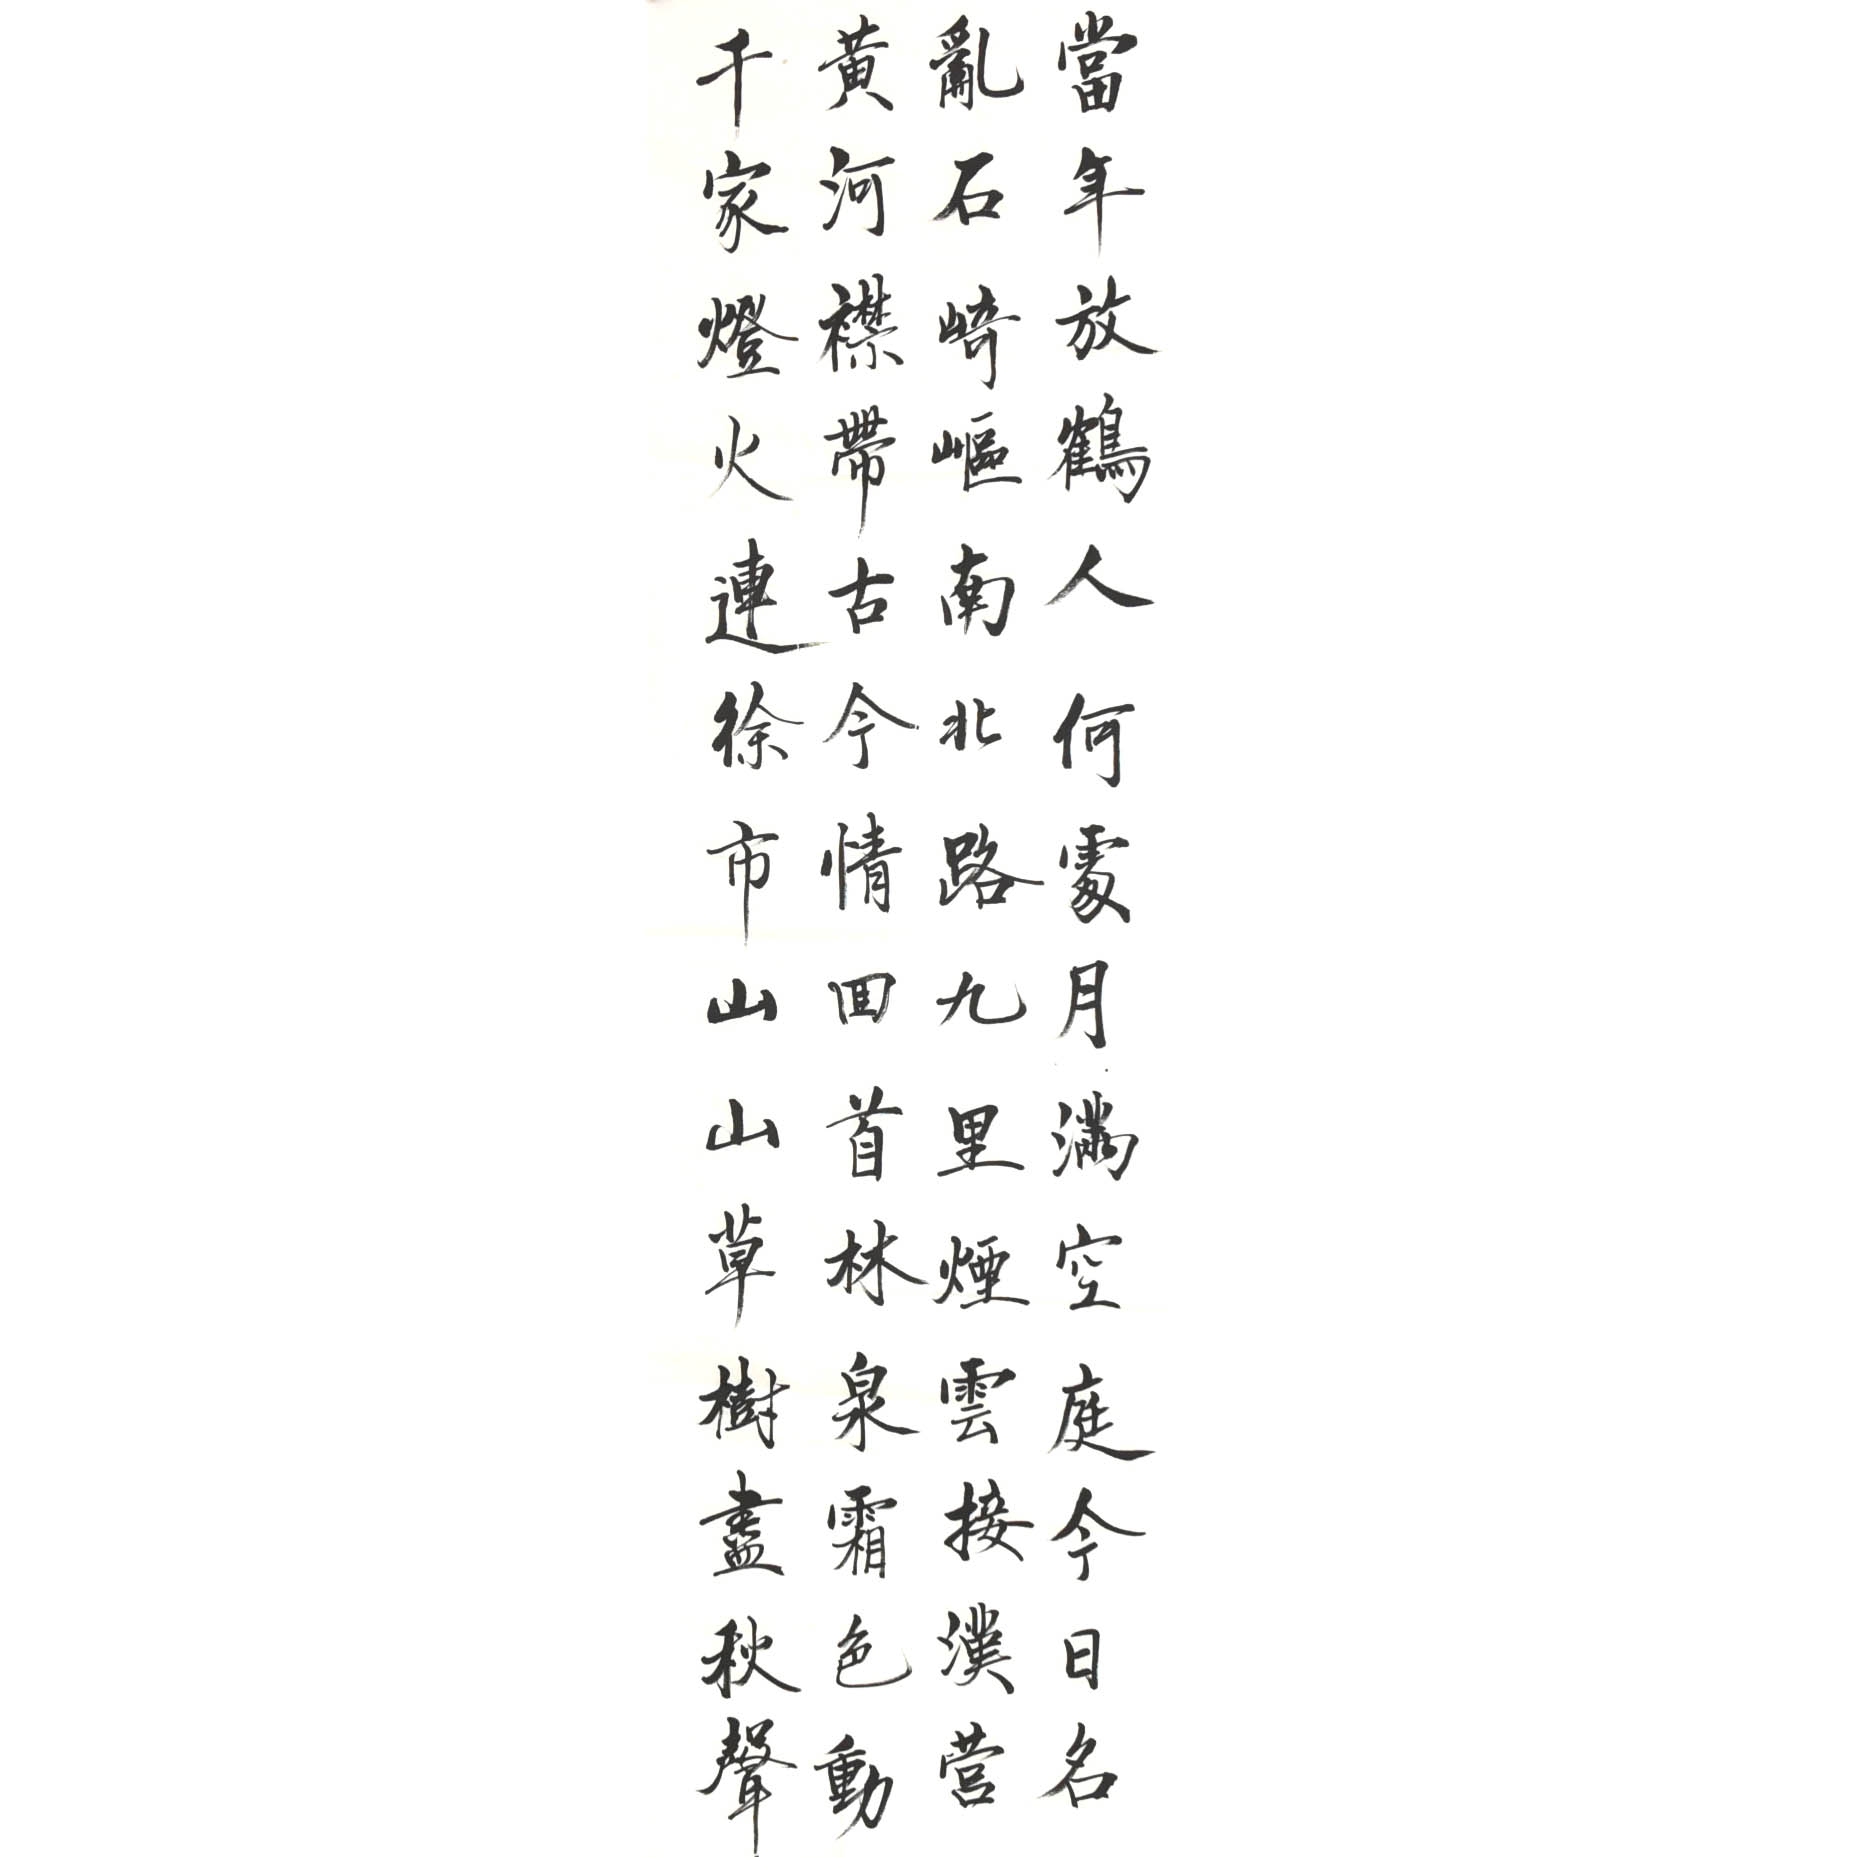 當年放鶴人何處月滿空庭今日名
亂石崎嶇南北路九里煙雲接漢营
黃河襟帶古今情回首林泉霜色動
千家燈火連徐市山山草樹盡秋聲